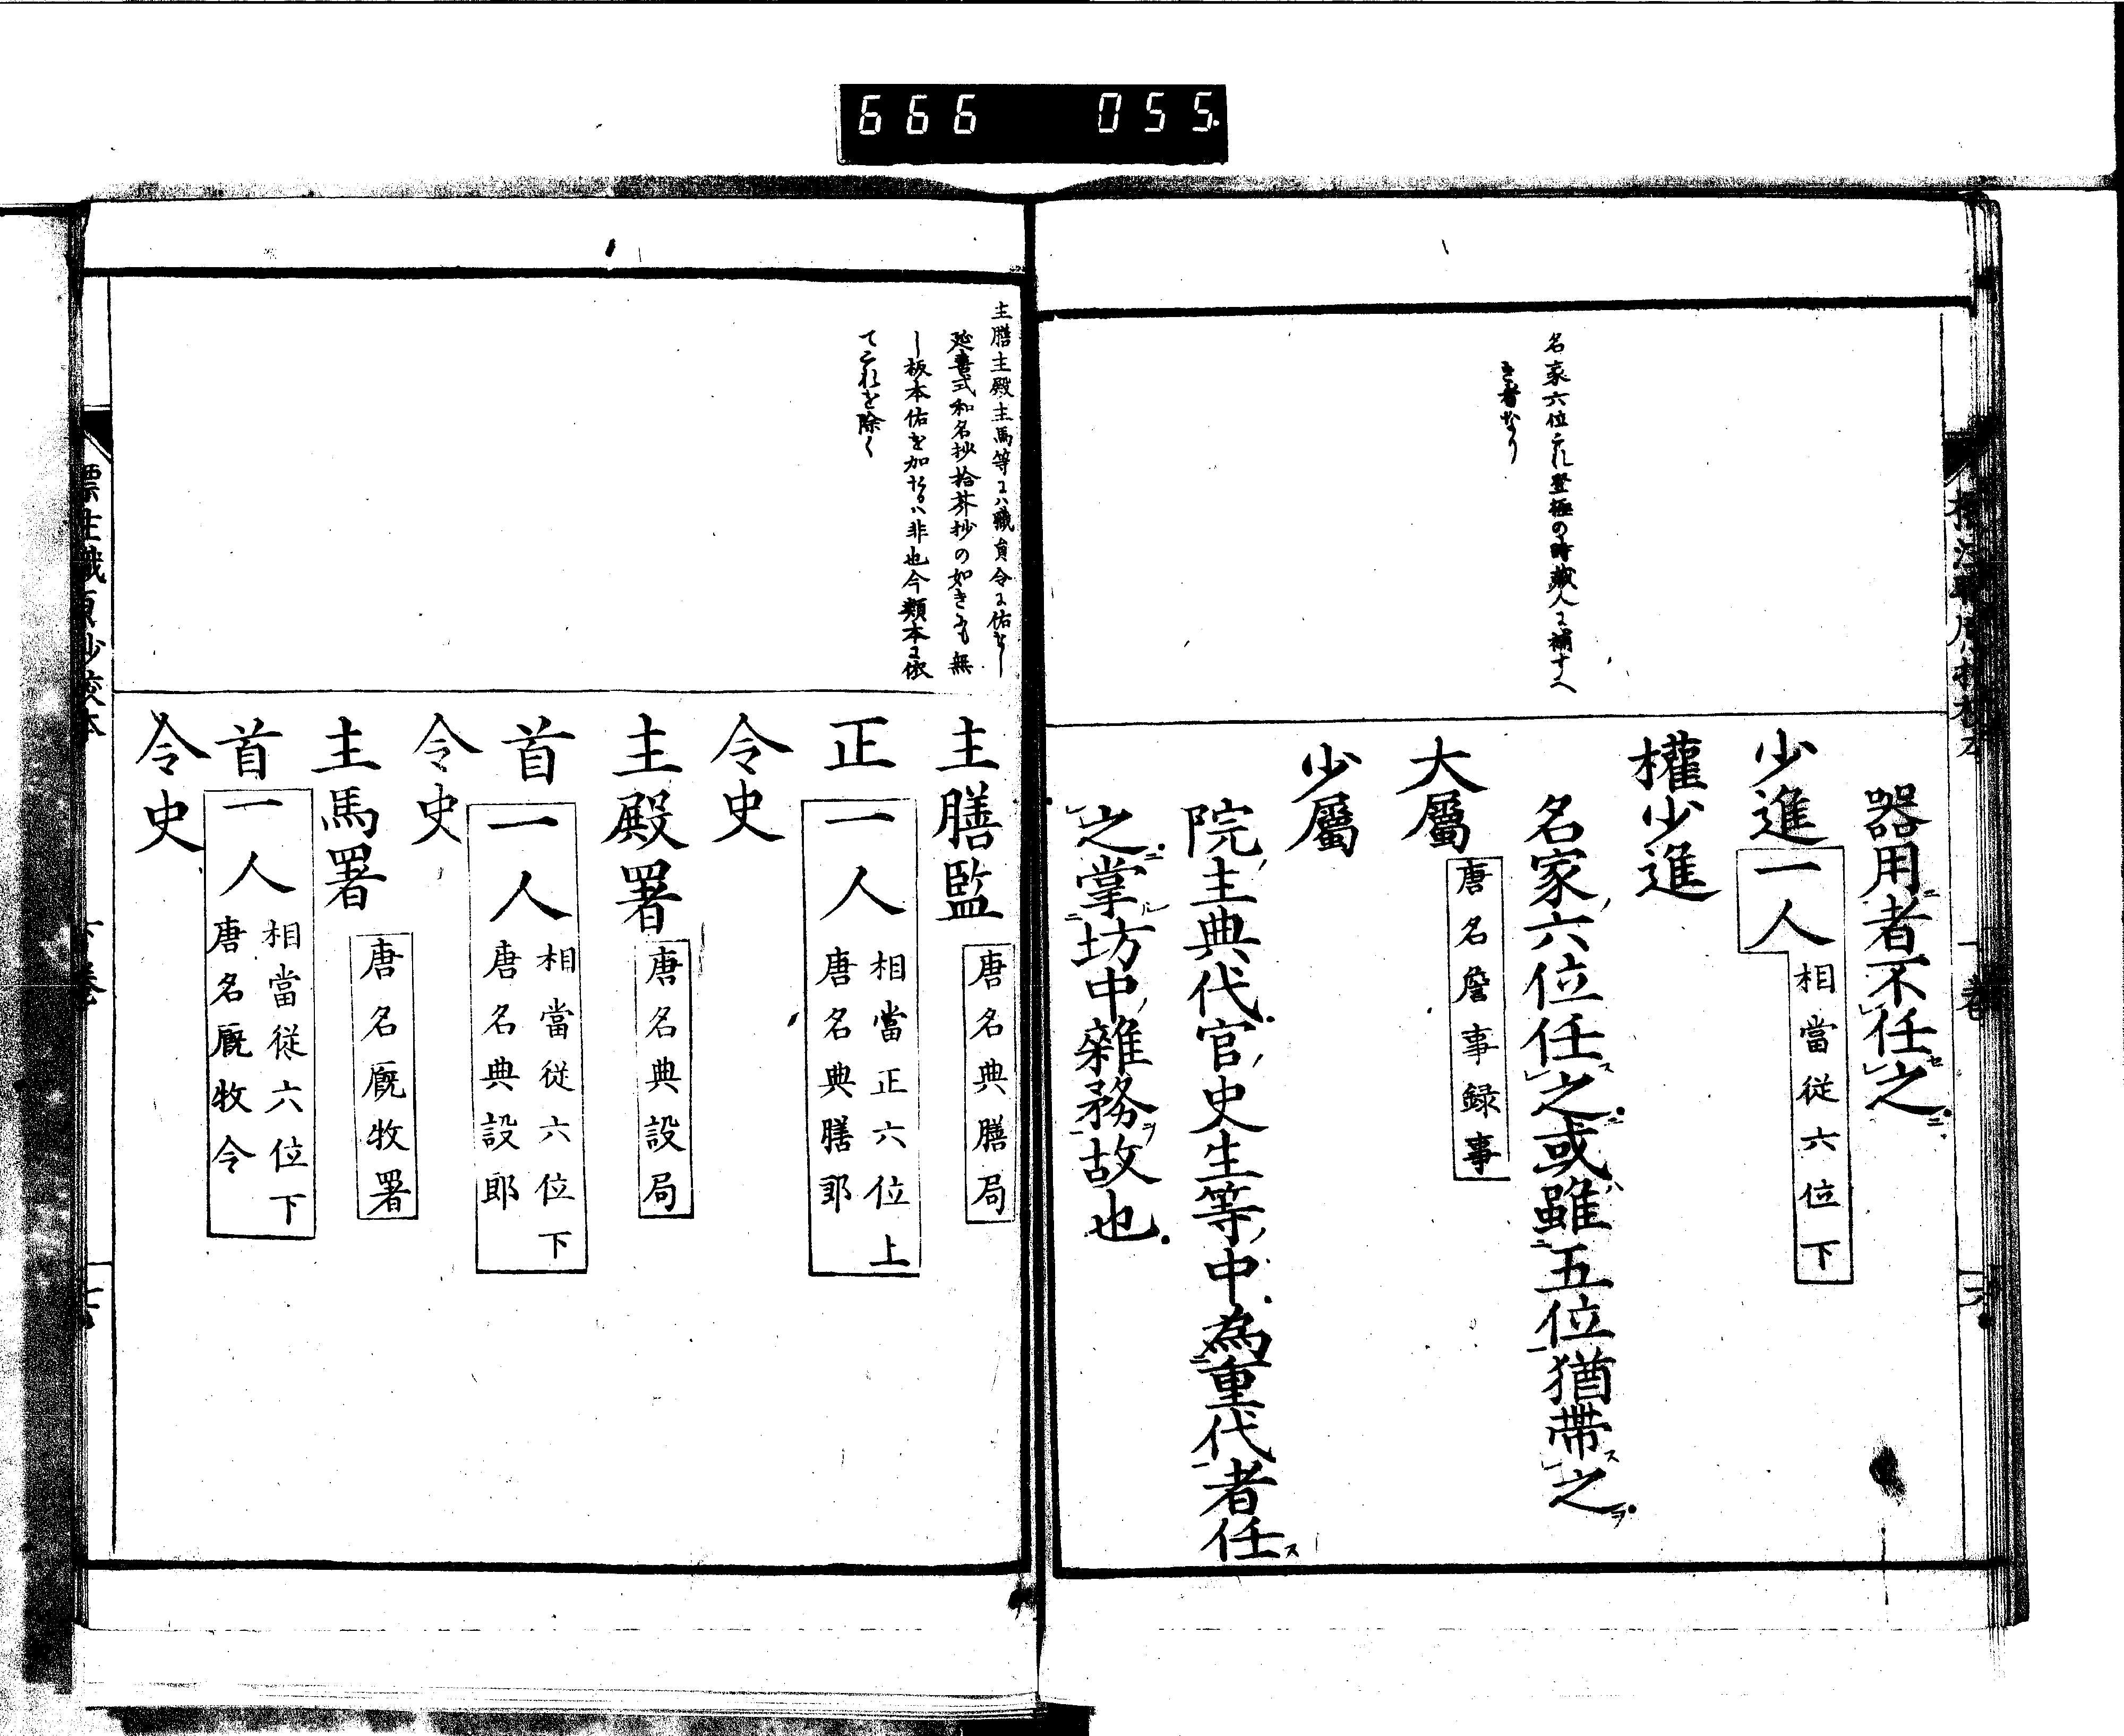 666 055
名家六位これ登極の時蔵人に補すへ
き者なり
器用者不任之
少進一人相當従六位下
權少進
名家六位任之或雖五位猶帶之
大屬唐名詹事録事
少屬
院主典代官史生等中為重代者任
之掌坊中雜務故也
主膳主殿主馬等には職員令に佑なし
延喜式和名抄拾芥抄の如きも無
し板本佑を加たるは非也今類本に依
てこれを除く
主膳監唐名典膳局
正一人相當正六位上
唐名典膳郎
令史
主殿署唐名典設局
首一人相當従六位下
唐名典設郎
令史
主馬署唐名厩牧署
首一人相當従六位下
唐名厩牧令
令史
標注職員抄校本 下巻 七